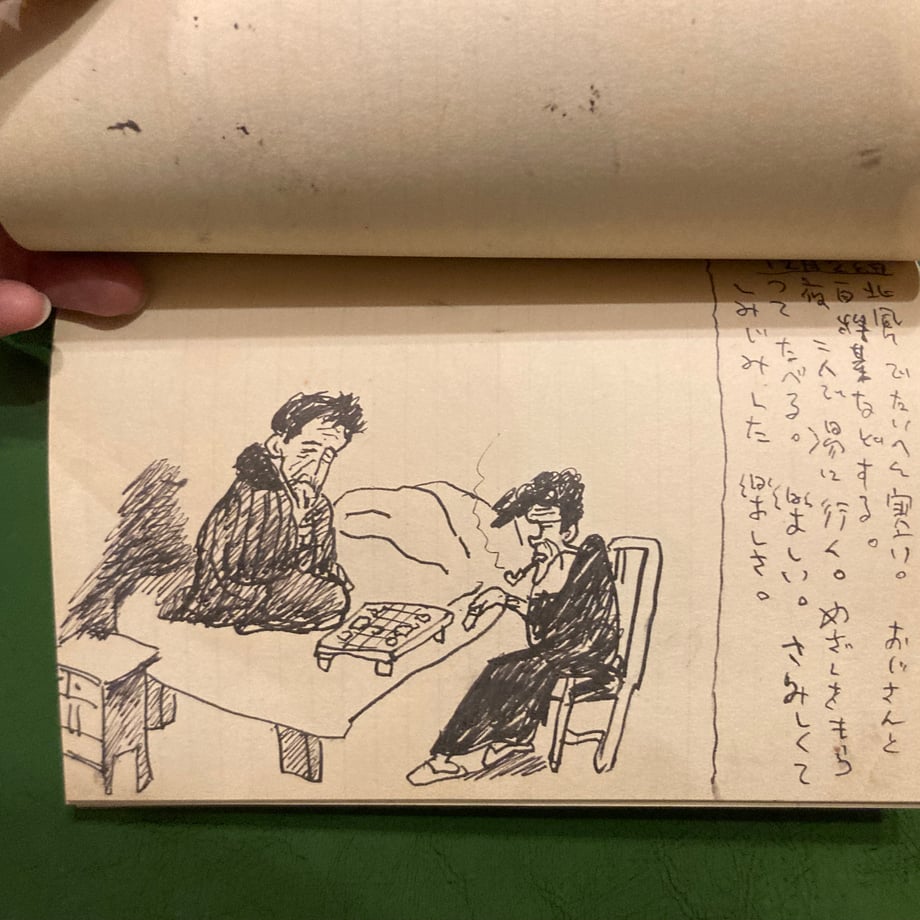 北風でたいへん寒い。 おじさんと
などする。
夜 二人で湯に行く。めざしをもら
つてたべる。 楽しい。 さみしくて
しみじみした 楽しさ。